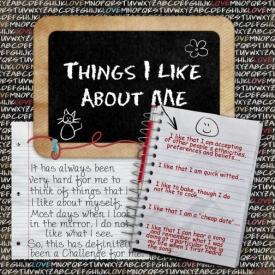 THINGS I LIKE
ABOUT ME
It has always been
very hard for me to
think of things that I
like about myself.
Most days when I look
in the mirror, I do not
like what I see.
So, this has definitely
been a Challenge for me!
I like that I am accepting
of other people's ethnicities,
preferences and beliefs...
I like that I am quick witted...
I like to bake, though I do
not like to cook.
I like that I am a "cheap date".
I like that I can hear a song
and remember what I was
doing at a particular time in
my life when